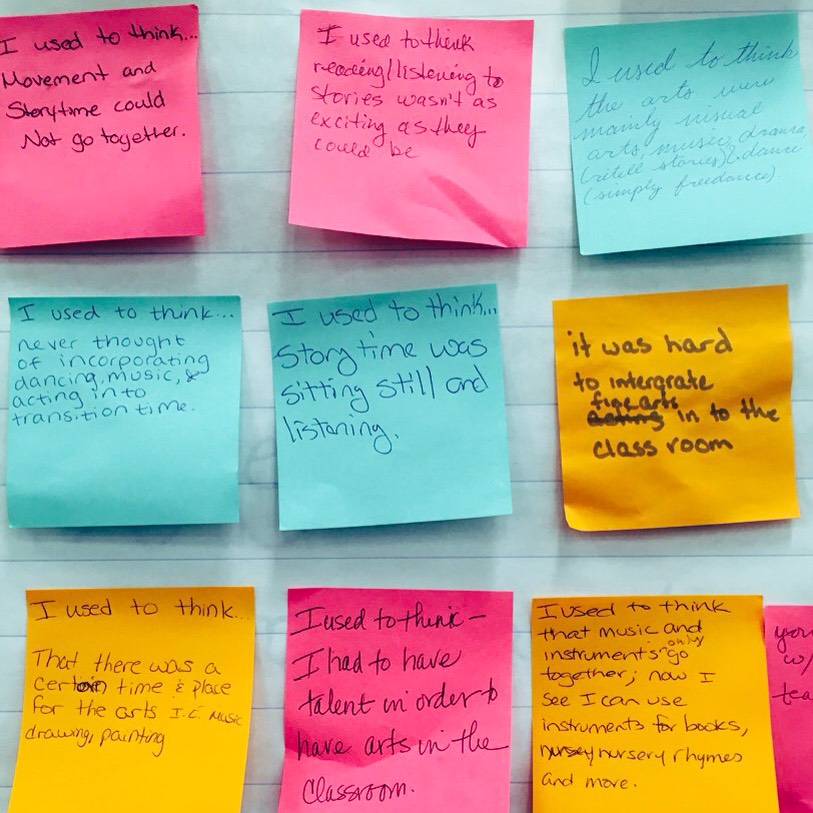 I used to think...
Movement and
Storytime could
Not go together.
I used to think
reading/listening to
stories wasn't as
exciting as they
could be
I used to think
the arts were
mainly visual
arts, music, drama,
(retell stories), dance
(simply freedance)
I used to think...
never thought
of incorporating
dancing, music, &
acting into
transition time.
I used to think...
Story time was
sitting still and
listening.
it was hard
to intergrate
fine arts
acting in to the
class room
I used to think...
That there was a
certain time & place
for the arts I.E. Music
drawing, painting
I used to think -
I had to have
talent in order to
have arts in the
classroom.
I used to think
that music and
instruments only go
together; now I
see I can use
instruments for books,
nursey nursery rhymes
and more.
you
w/
tea